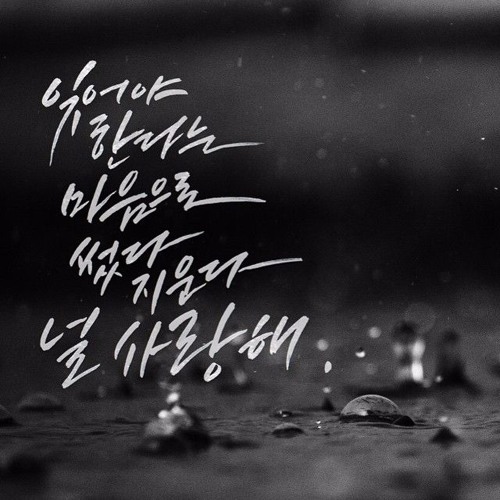 잊어야
한다는
마음으로
썼다
지운다
널 사랑해.